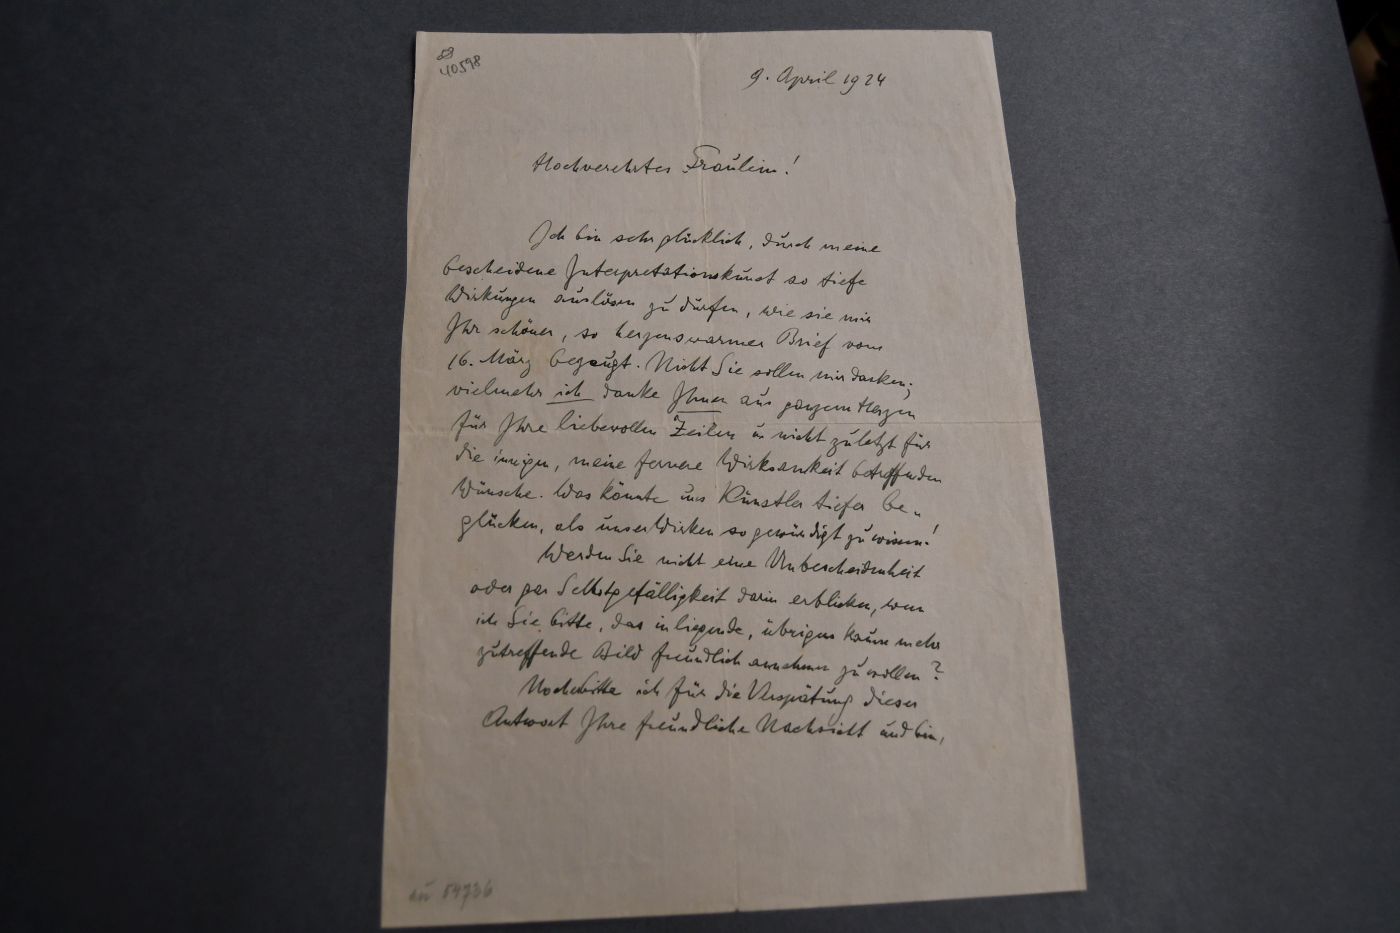 40598
9. April 1924
Hochverehrtes Fräulein!
Ich bin sehr glücklich, durch meine
bescheidene Interpretationskunst so tiefe
Wirkungen auslösen zu dürfen, wie sie mir
Ihr schöner, so herzenswarmer Brief vom
16. März bezeugt. Nicht Sie sollen mir danken;
vielmehr ich danke Ihnen aus ganzem Herzen
für Ihre liebevollen Zeilen u nicht zuletzt für
die innigen, meine fernere Wirksamkeit betreffenden
Wünsche. Was könnte uns Künstler tiefer be-
glücken, als unser Wirken so gewürdigt zu wissen!
Werden Sie nicht eine Unbescheidenheit
oder gar Selbstgefälligkeit darin erblicken, wenn
ich Sie bitte, das inliegende, übrigens kaum mehr
zutreffende Bild freundlich annehmen zu wollen?
Noch bitte ich für die Verspätung dieser
Antwort Ihre freundliche Nachsicht und bin,
54736